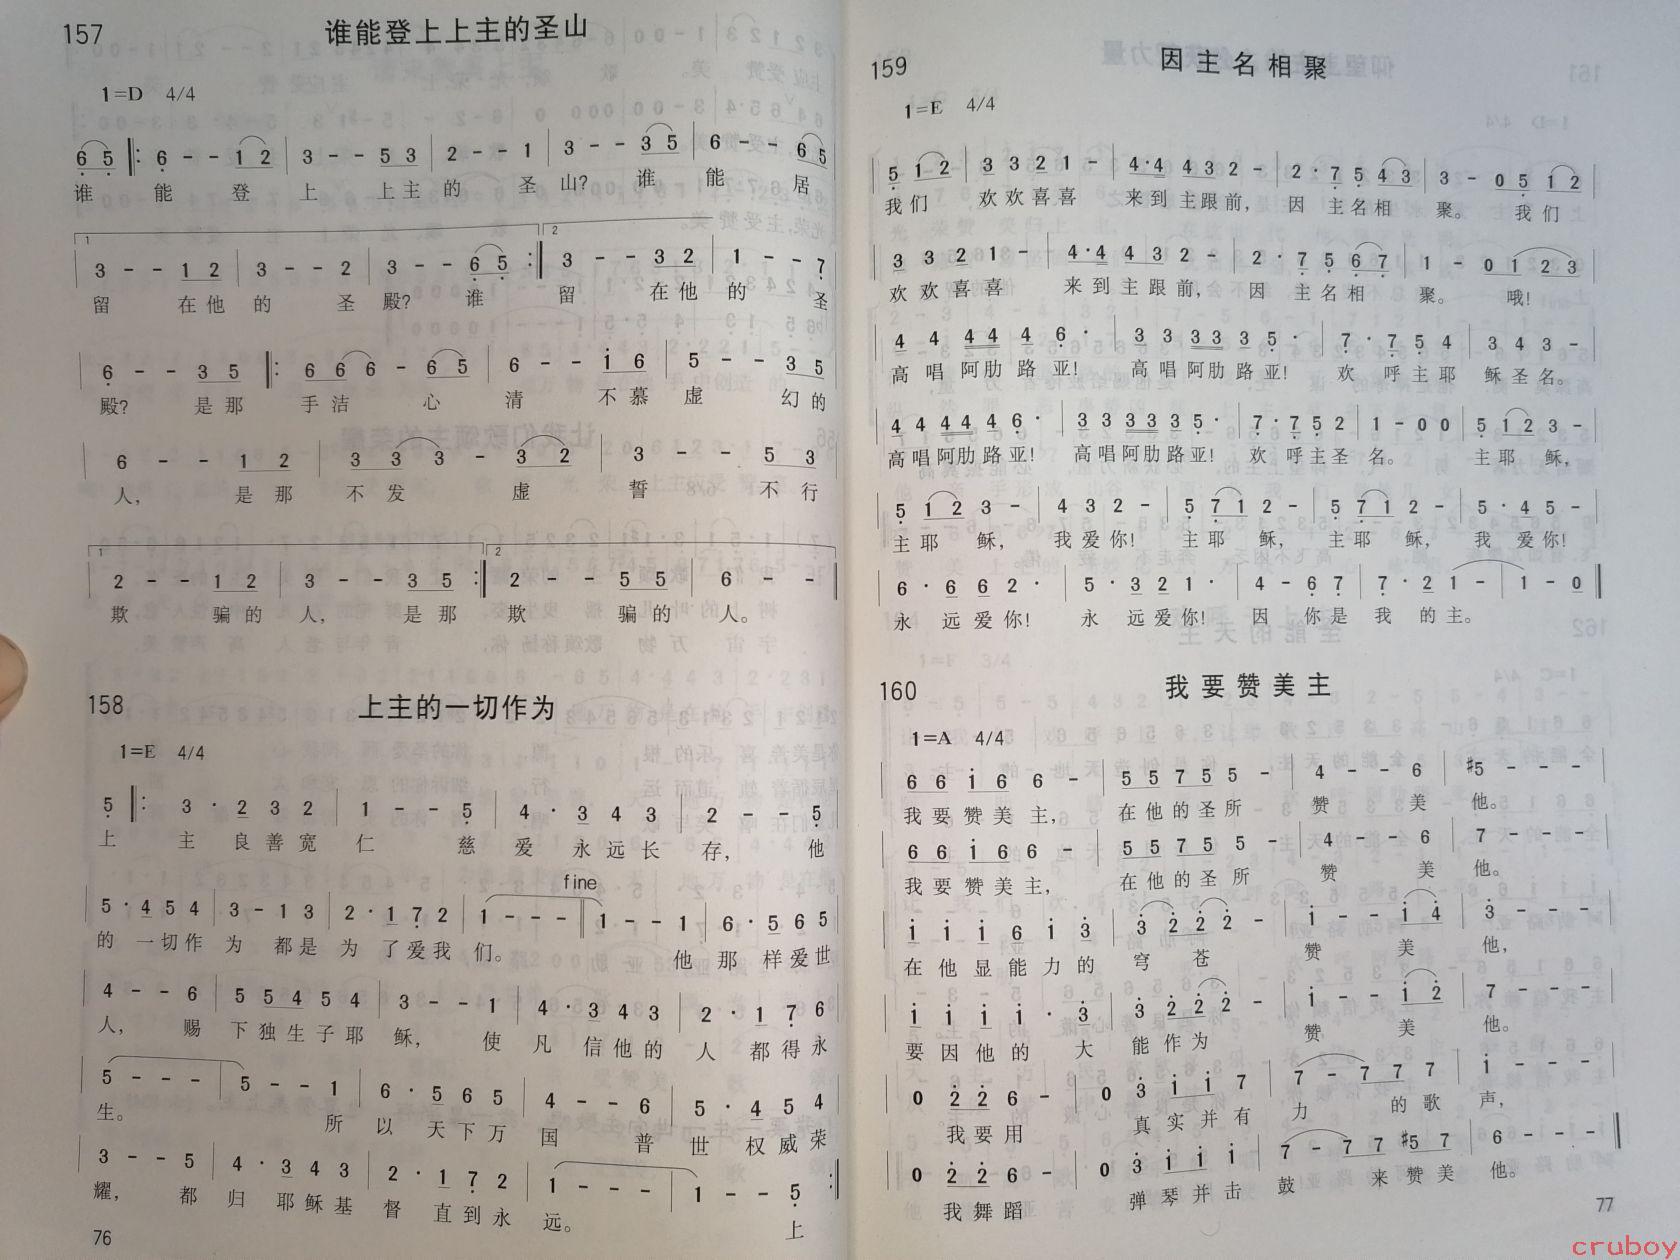 157
谁能登上上主的圣山
1=D 4/4
6 5 ‖: 6 - - 1 2 | 3 - - 5 3 | 2 - - 1 | 3 - - 3 5 | 6 - - 6 5
谁 能 登 上 上主 的 圣 山? 谁 能 居
1 2
3 - - 1 2 | 3 - - 2 | 3 - - 6 5 :‖ 3 - - 3 2 | 1 - - 7
留 在他 的 圣 殿? 谁 留 在他 的 圣
6 - - 3 5 ‖: 6 6 6 - 6 5 | 6 - - i 6 | 5 - - 3 5
殿? 是那 手洁 心 清 不慕 虚 幻的
6 - - 1 2 | 3 3 3 - 3 2 | 3 - - 5 3
人, 是那 不发 虚 誓 不行
1 2
2 - - 1 2 | 3 - - 3 5 :‖ 2 - - 5 5 | 6 - -
欺 骗的 人, 是那 欺 骗的 人。
158
上主的一切作为
1=E 4/4
5 ‖: 3 · 2 3 2 | 1 - - 5 | 4 · 3 4 3 | 2 - - 5
上 主 良善宽 仁 慈 爱 永远长 存, 他
fine
5 · 4 5 4 | 3 - 1 3 | 2 · 1 7 2 | 1 - - - ‖ 1 - - 1 | 6 · 5 6 5
的 一切作 为 都是 为 了爱我 们。 他 那 样爱世
4 - - 6 | 5 5 4 5 4 | 3 - - 1 | 4 · 3 4 3 | 2 · 1 7 6
人, 赐 下独生子耶 稣, 使 凡 信他的 人 都得永
5 - - - | 5 - - 1 | 6 · 5 6 5 | 4 - - 6 | 5 · 4 5 4
生。 所 以 天下万 国 普 世 权威荣
3 - - 5 | 4 · 3 4 3 | 2 · 1 7 2 | 1 - - - | 1 - - 5 :‖
耀, 都 归 耶稣基 督 直到永 远。 上
76
159
因主名相聚
1=E 4/4
5 1 2 | 3 3 2 1 - | 4 · 4 4 3 2 - | 2 · 7 5 4 3 | 3 - 0 5 1 2
我们 欢欢喜喜 来到主跟前, 因 主名相 聚。 我们
3 3 2 1 - | 4 · 4 4 3 2 - | 2 · 7 5 6 7 | 1 - 0 1 2 3
欢欢喜喜 来到主跟前, 因 主名相 聚。 哦!
4 4 4 4 4 6 · | 3 3 3 3 3 5 · | 7 · 7 5 4 | 3 4 3 -
高唱阿肋路亚! 高唱阿肋路亚! 欢 呼主耶 稣圣名。
4 4 4 4 4 6 · | 3 3 3 3 3 5 · | 7 · 7 5 2 | 1 - 0 0 | 5 1 2 3 -
高唱阿肋路亚! 高唱阿肋路亚! 欢 呼主圣 名。 主耶 稣,
5 1 2 3 - | 4 3 2 - | 5 7 1 2 - | 5 7 1 2 - | 5 · 4 5 -
主耶 稣, 我爱你! 主耶 稣, 主耶 稣, 我 爱你!
6 · 6 6 2 - | 5 · 3 2 1 · | 4 - 6 7 | 7 · 2 1 - | 1 - 0 ‖
永 远爱你! 永 远爱你! 因 你是 我 的主。
160
我要赞美主
1=A 4/4
6 6 i 6 6 - | 5 5 7 5 5 - | 4 - - 6 | #5 - - -
我要赞美主, 在他的圣所 赞 美 他。
6 6 i 6 6 - | 5 5 7 5 5 - | 4 - - 6 | 7 - - -
我要赞美主, 在他的圣所 赞 美 他。
i i i 6 i 3 | 3 2 2 2 - | i - - i 4 | 3 - - -
在他显能力的 穹 苍 赞 美 他,
i i i i · 3 | 3 2 2 2 - | i - - i 2 | 7 - - -
要因他的 大 能作为 赞 美 他。
0 2 2 6 - | 0 3 i i 7 | 7 - 7 7 7 | i - - -
我要用 真实并有 力 的歌 声,
0 2 2 6 - | 0 3 i i i | 7 - 7 7 #5 7 | 6 - - - ‖
我舞蹈 弹琴并击 鼓 来赞美 他。
77
cruboy